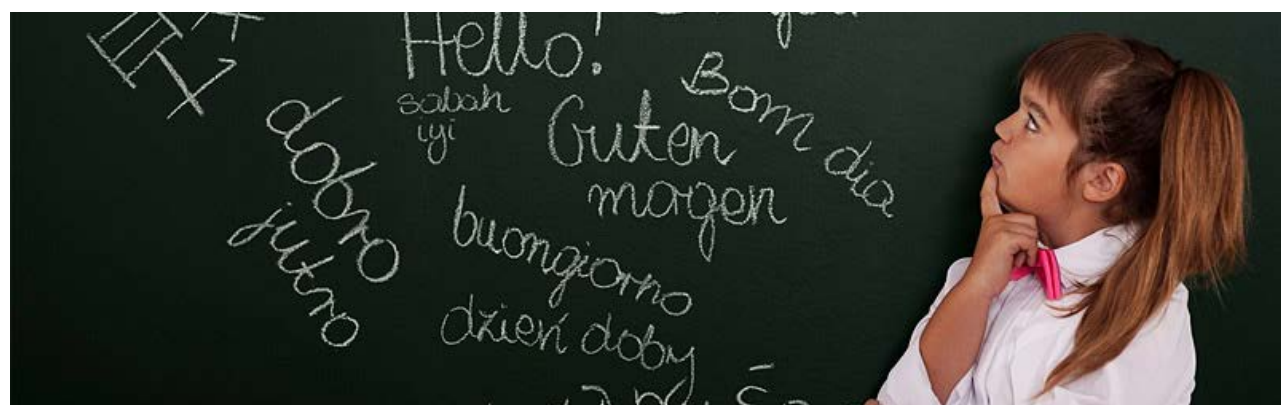 Hello!
sabah
iyi
Guten
magen
Bom dia
dobro
jutro
buongiorno
dzień doby